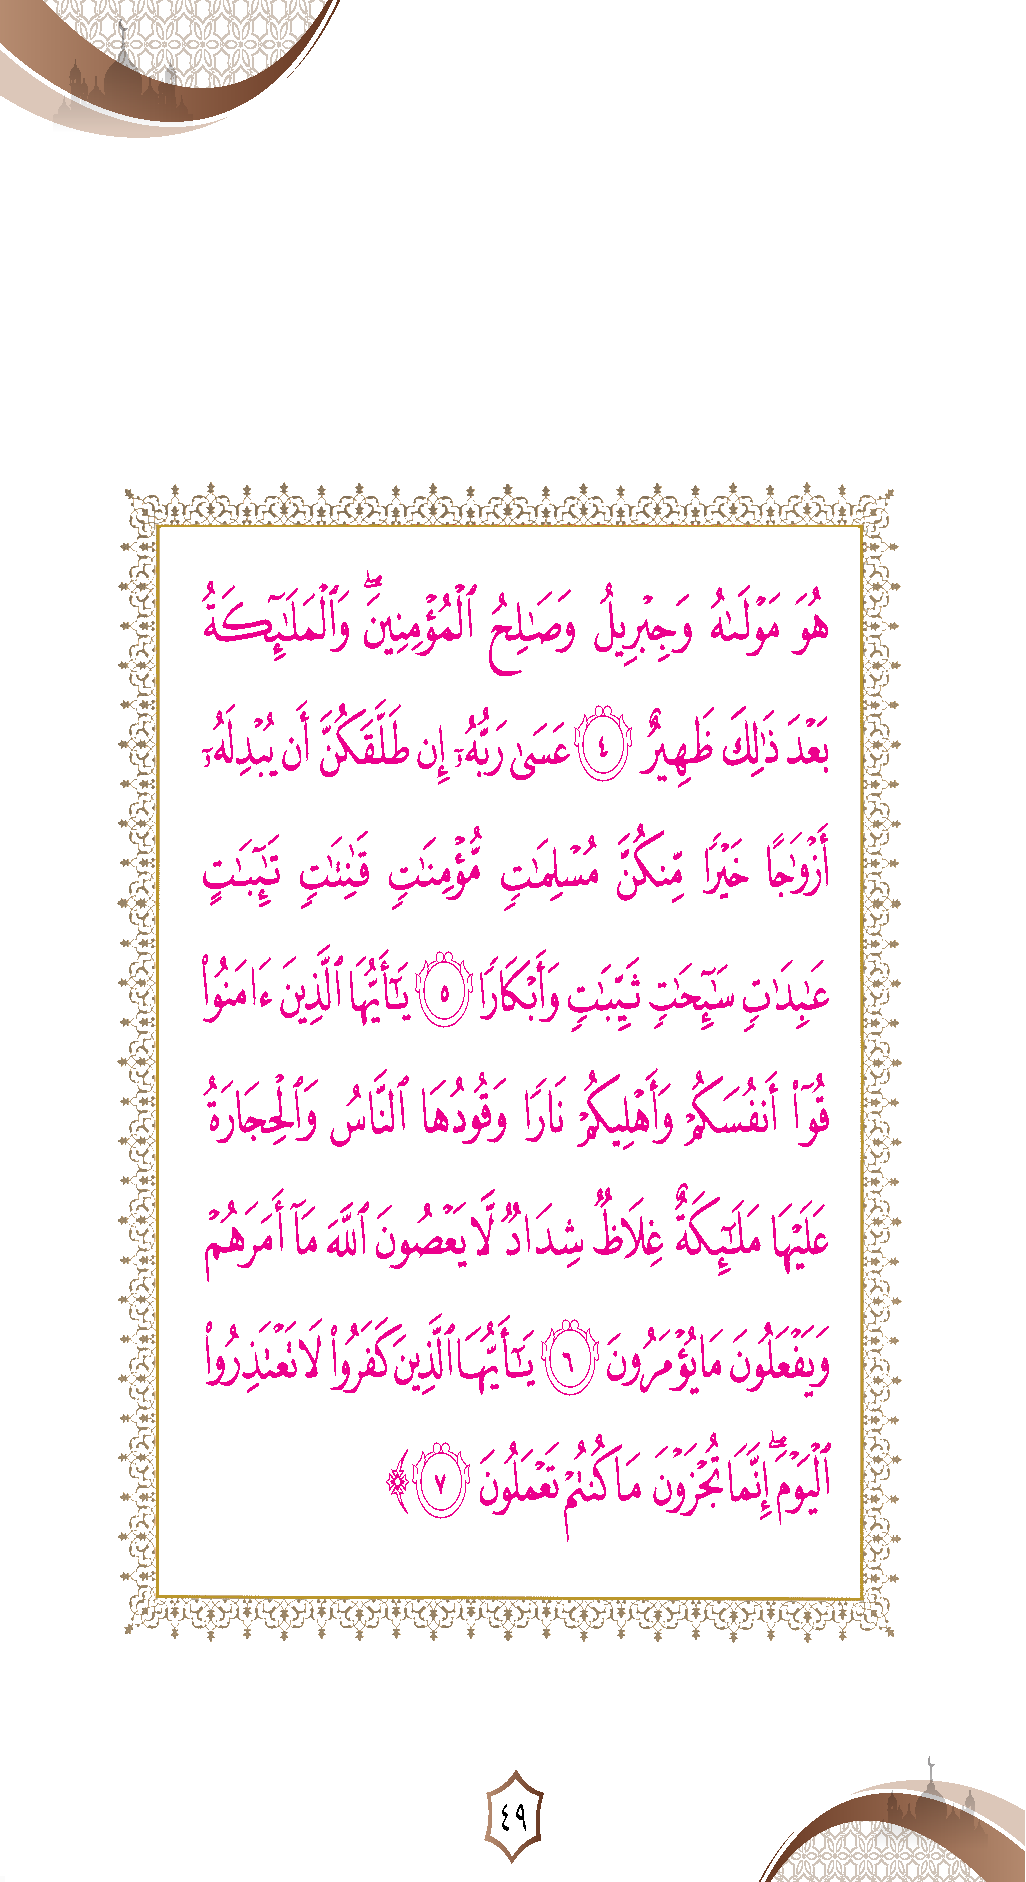 هُوَ مَوْلَىٰهُ وَجِبْرِيلُ وَصَٰلِحُ ٱلْمُؤْمِنِينَ ۖ وَٱلْمَلَٰٓئِكَةُ
بَعْدَ ذَٰلِكَ ظَهِيرٌ ٤ عَسَىٰ رَبُّهُۥٓ إِن طَلَّقَكُنَّ أَن يُبْدِلَهُۥٓ
أَزْوَٰجًا خَيْرًا مِّنكُنَّ مُسْلِمَٰتٍ مُّؤْمِنَٰتٍ قَٰنِتَٰتٍ تَٰٓئِبَٰتٍ
عَٰبِدَٰتٍ سَٰٓئِحَٰتٍ ثَيِّبَٰتٍ وَأَبْكَارًا ٥ يَٰٓأَيُّهَا ٱلَّذِينَ ءَامَنُوا۟
قُوٓا۟ أَنفُسَكُمْ وَأَهْلِيكُمْ نَارًا وَقُودُهَا ٱلنَّاسُ وَٱلْحِجَارَةُ
عَلَيْهَا مَلَٰٓئِكَةٌ غِلَاظٌ شِدَادٌ لَّا يَعْصُونَ ٱللَّهَ مَآ أَمَرَهُمْ
وَيَفْعَلُونَ مَا يُؤْمَرُونَ ٦ يَٰٓأَيُّهَا ٱلَّذِينَ كَفَرُوا۟ لَا تَعْتَذِرُوا۟
ٱلْيَوْمَ ۖ إِنَّمَا تُجْزَوْنَ مَا كُنتُمْ تَعْمَلُونَ ٧ ﴾
٤٩